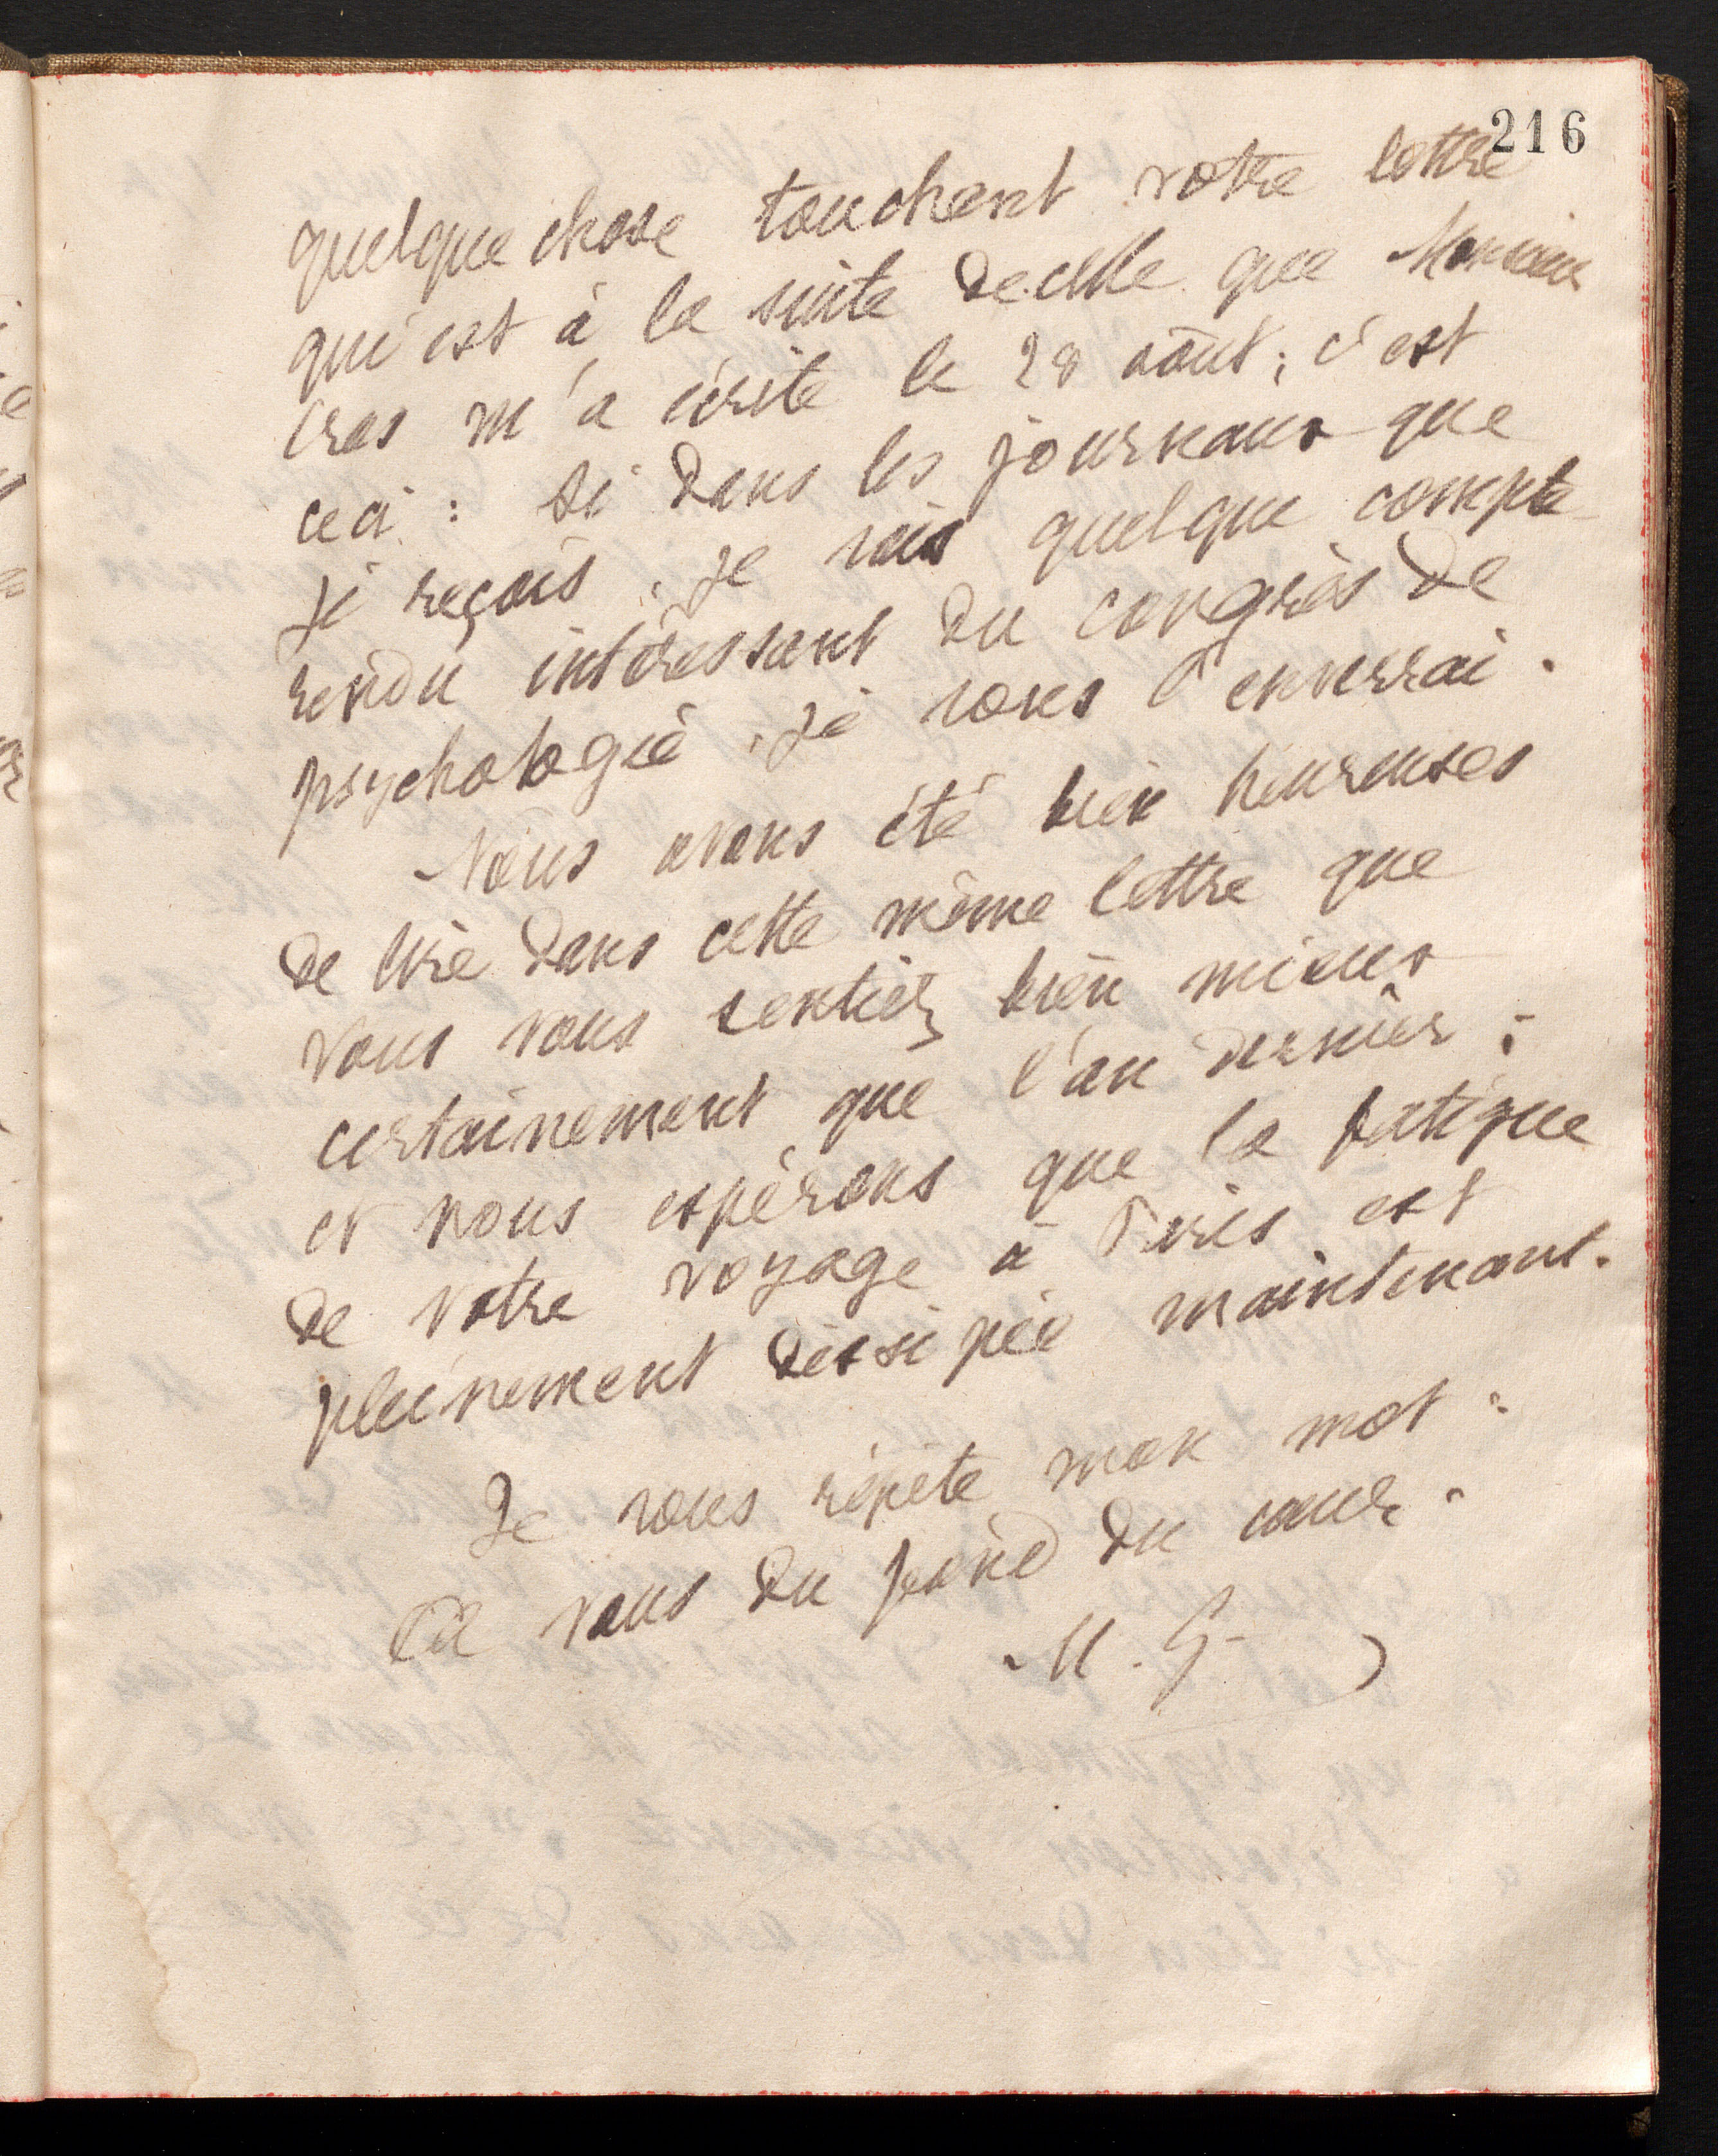 216
quelque chose touchant votre lettre
qui est à la suite de celle que Monsieur
Cros m'a écrite le 28 août ; c'est
ceci : si dans les journaux que
je reçois, je vois quelque compte-
rendu intéressant du congrès de
psychologie, je vous l'enverrai.
Nous avons été bien heureuses
de lire dans cette même lettre que
vous vous sentiez bien mieux
certainement que l'an dernier ;
et nous espérons que la fatigue
de votre voyage à Paris est
pleinement dissipée maintenant.
Je vous répète mon mot :
à vous du fond du cœur.
M. G.